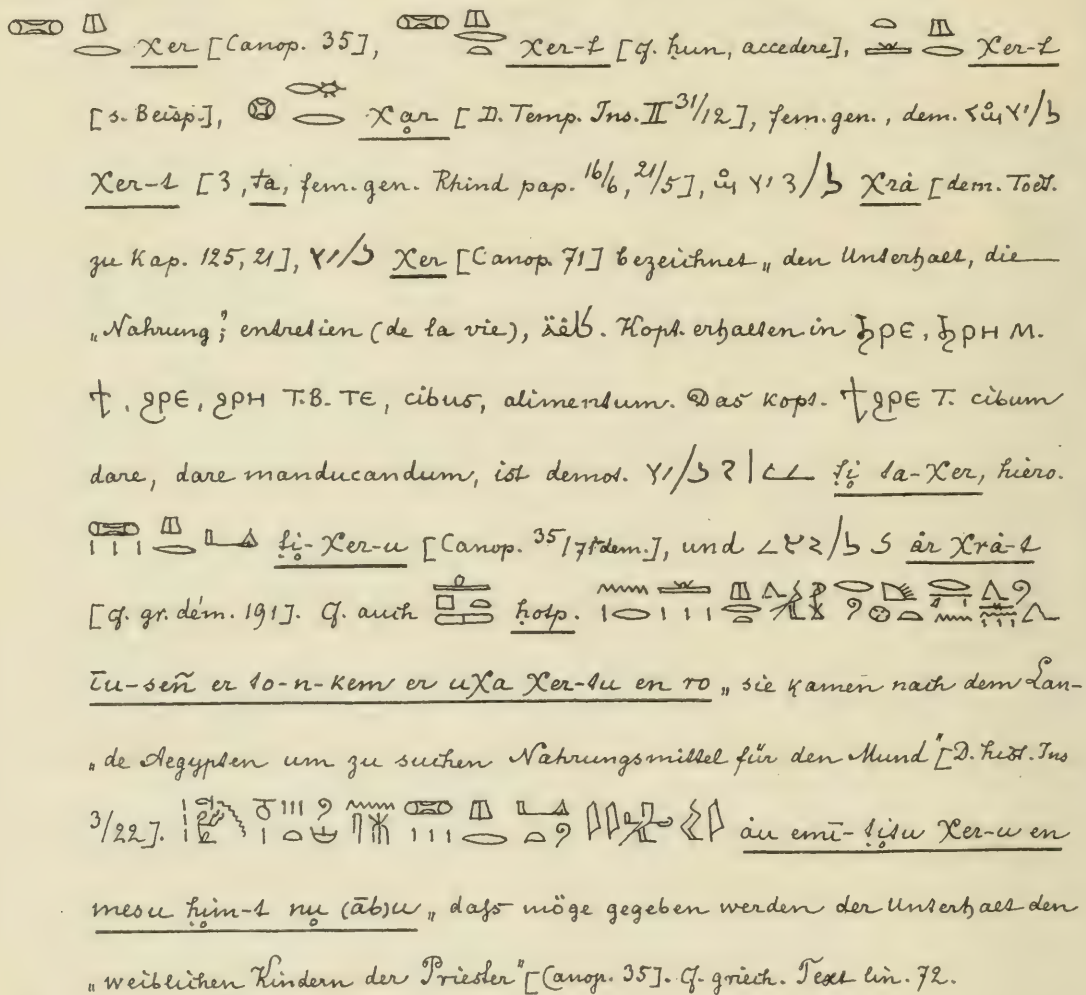 χer [Canop. 35], χer-t [cf. hun, accedere], χer-t
[s. Beisp.], χar [D. Temp. Ins. II 31/12], fem. gen., dem.
χer-t [3, ta, fem. gen. Rhind pap. 16/6, 21/5], χrȧ [dem. Todt.
zu Kap. 125, 21], χer [Canop. 71] bezeichnet „den Unterhalt, die
„Nahrung“, entretien (de la vie), Kopt. erhalten in ϧρε, ϧρη M.
ϯ, ϩρε, ϩρη T.B. ΤΕ, cibus, alimentum. Das kopt. ϯϩρε T. cibum
dare, dare manducandum, ist demot. ti̥ ta-χer, hiero.
ti̥-χer-u [Canop. 35/71 dem.], und ȧr χrȧ-t
[cf. gr. dém. 191]. Cf. auch ḥotp.
īu-señ er to-n-kem er uχa χer-tu en ro „sie kamen nach dem Lan-
„de Aegypten um zu suchen Nahrungsmittel für den Mund“ [D. hist. Ins
3/22]. ȧu emī-ti̥tu χer-u en
mesu ḥim-t nu̥ (āb)u „daſs möge gegeben werden der Unterhalt den
„weiblichen Kindern der Priester“ [Canop. 35]. Cf. griech. Text lin. 72.